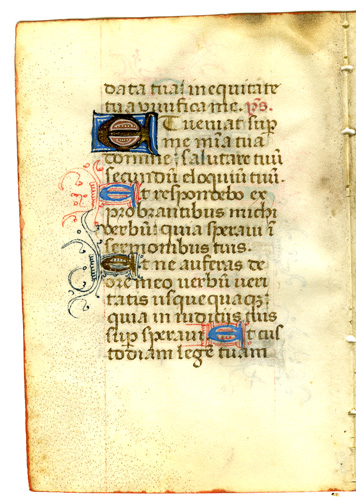 data tua? in equitate
tua vivifica me. ps.
Et veniat sup
me mia tua
domine: salutare tuū
secundū eloquiū tuū.
Et respondebo ex
probrantibus michi
verbū: quia speravi ī
sermonibus tuis.
Et ne auferas de
ore meo verbū veri
tatis usque quaqȝ:
quia in iudiciis tuis
sup speravi Et cus
todiam legē tuam